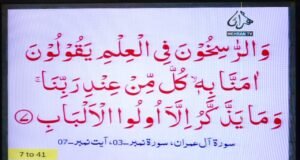 MEHRAN TV
وَالرّٰسِخُوْنَ فِی الْعِلْمِ یَقُوْلُوْنَ
اٰمَنَّا بِهٖ ۙ كُلٌّ مِّنْ عِنْدِ رَبِّنَا ۚ
وَمَا یَذَّكَّرُ اِلَّاۤ اُولُوا الْاَلْبَابِ ۝۷
سورة آل عمران، سورة نمبر-03، آیت نمبر-07
7 to 41